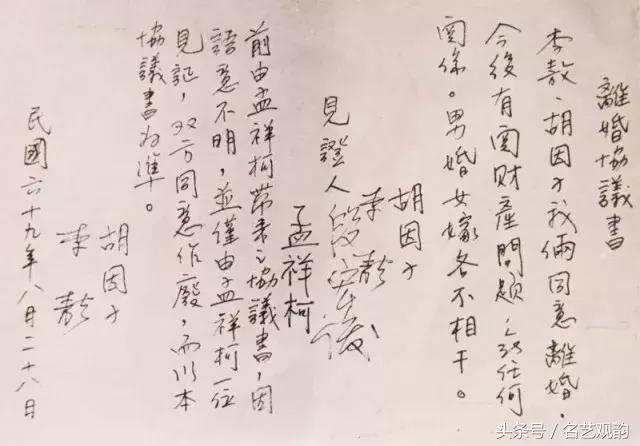 離婚協議書
李敖、胡因子我倆同意離婚.
今後有関財產問題,任何
関係。男婚女嫁各不相干。
胡因子
李敖
見證人段宏俊
孟祥柯
前由孟祥柯帶来之協議書,因
語意不明,並僅由孟祥柯一位
見証,双方同意作廢,而以本
協議書为準。
胡因子
李敖
民國六十九年八月二十八日
头条号 / 名艺观韵